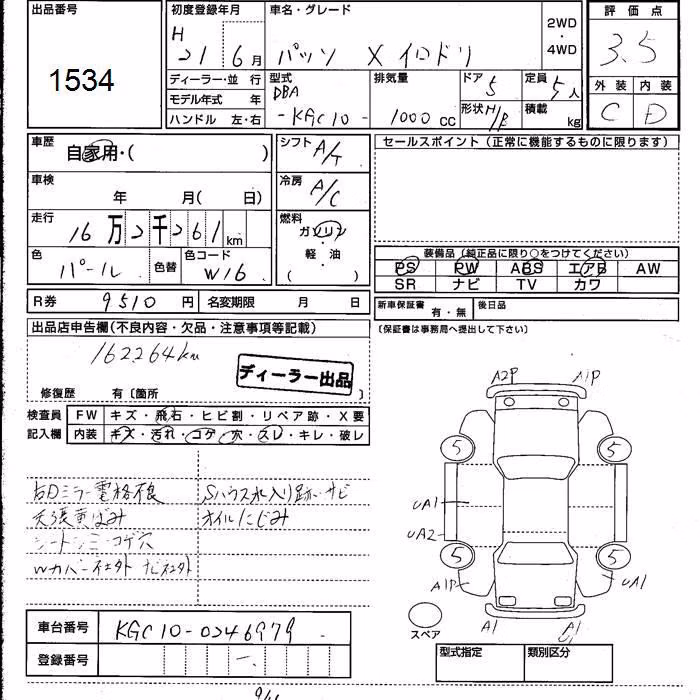 出品番号
1534
初度登録年月
H 21 6月
車名・グレード
パッソ X イロドリ
2WD
・
4WD
評価点
3.5
外装 内装
C D
ディーラー・並行
モデル年式 年
ハンドル 左・右
型式
DBA
-KGC10-
排気量
1000cc
ドア
5
形状 H/B
定員
5人
積載
kg
車歴
自家用・( )
車検
年 月( 日)
走行
16万2千261km
色
パール
色替
色コード
W16
シフト
A/T
冷房
A/C
燃料
ガソリン
・
軽油
( )
セールスポイント(正常に機能するものに限ります)
装備品(純正品に限り○をつけてください)
PS PW ABS エアB AW
SR ナビ TV カワ
R券 9510円 名変期限 月 日
新車保証書 有・無 後日品
(保証書は事務局へ提出して下さい)
出品店申告欄(不良内容・欠品・注意事項等記載)
162264km
ディーラー出品
修復歴 有〔箇所 〕
検査員
記入欄
FW キズ・飛石・ヒビ割・リペア跡・X要
内装 キズ・汚れ・コゲ・穴・スレ・キレ・破レ
右Dミラー電格不良
天張黄ばみ
シートシミ・コゲ穴
Wカバー社外 ナビ社外
Sハウス水入り跡・サビ
オイルにじみ
A2P A1P
5 5
UA1
UA2
5 5
A1P UA1
A1
スペア
車台番号 KGC10-0246979
登録番号 -
型式指定 類別区分